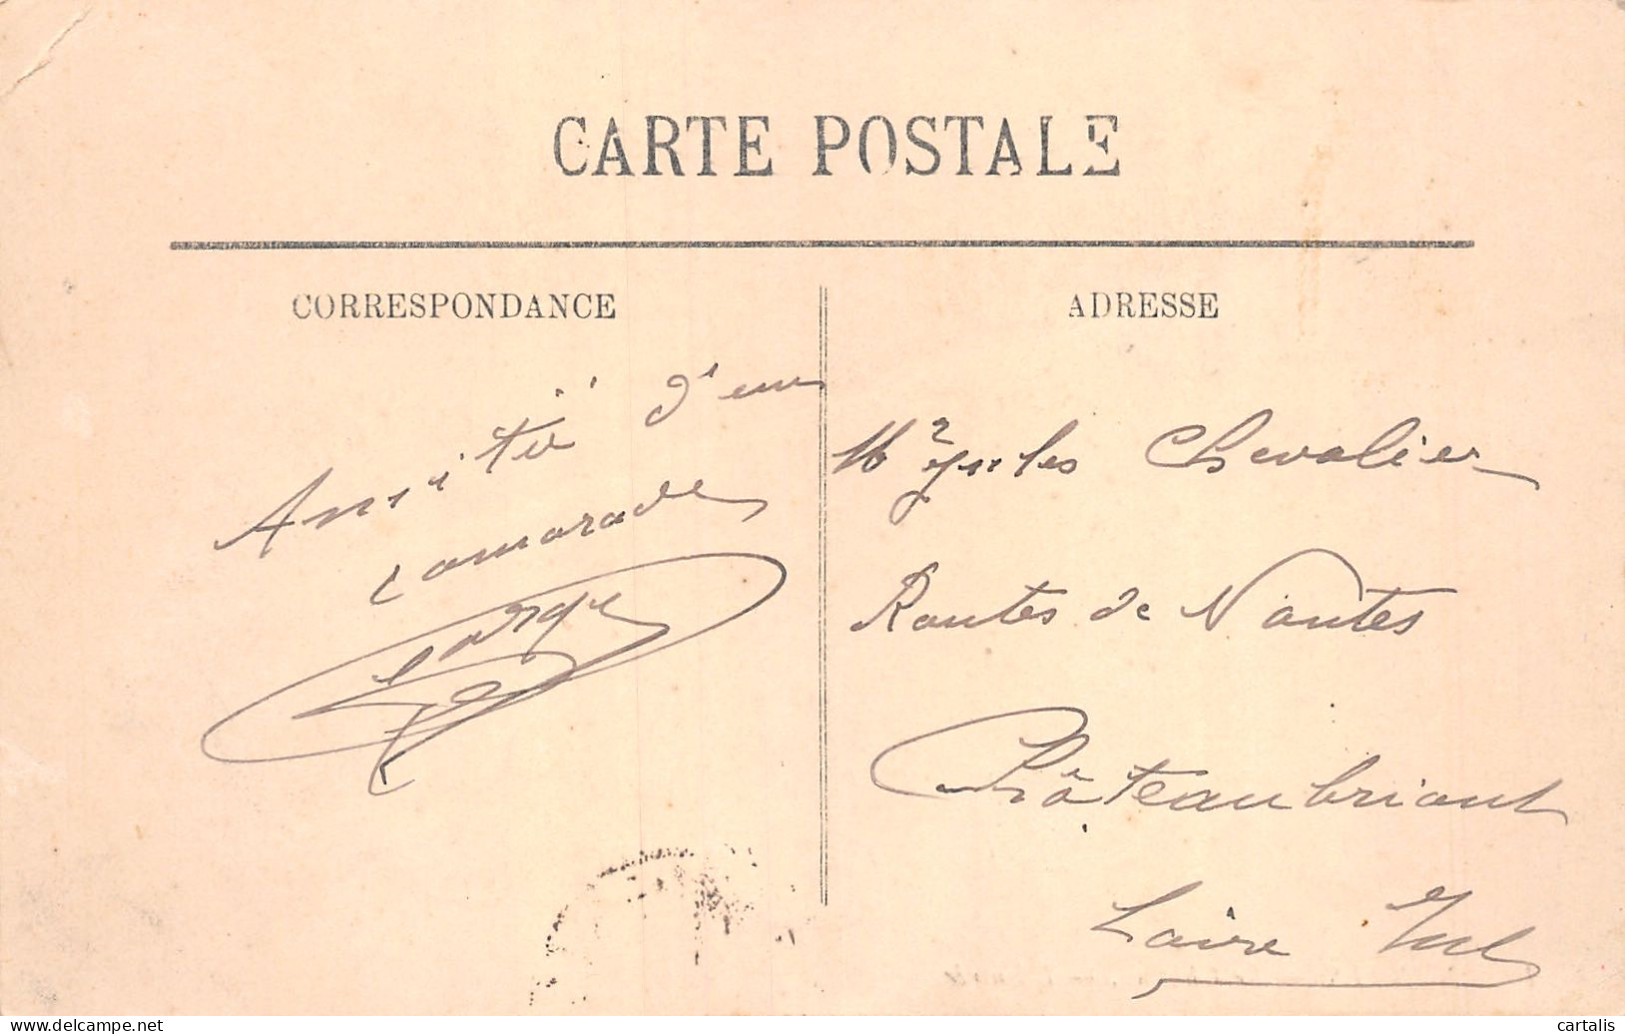 CARTE POSTALE
CORRESPONDANCE
Amitié d'un
camarade
ADRESSE
Mr Jules Chevalier
Routes de Nantes
Châteaubriant
Loire Inf
delcampe.net
cartalis